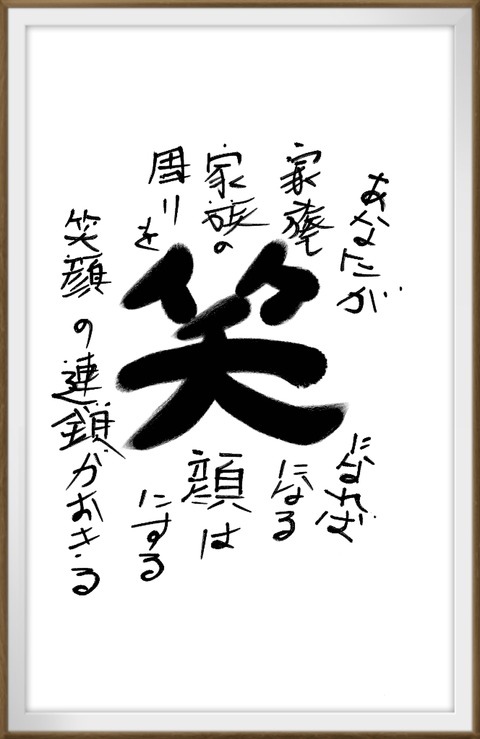 あなたが
家族も
家族の
周りを
笑
になれば
になる
顔は
にする
笑顔の連鎖がおきる